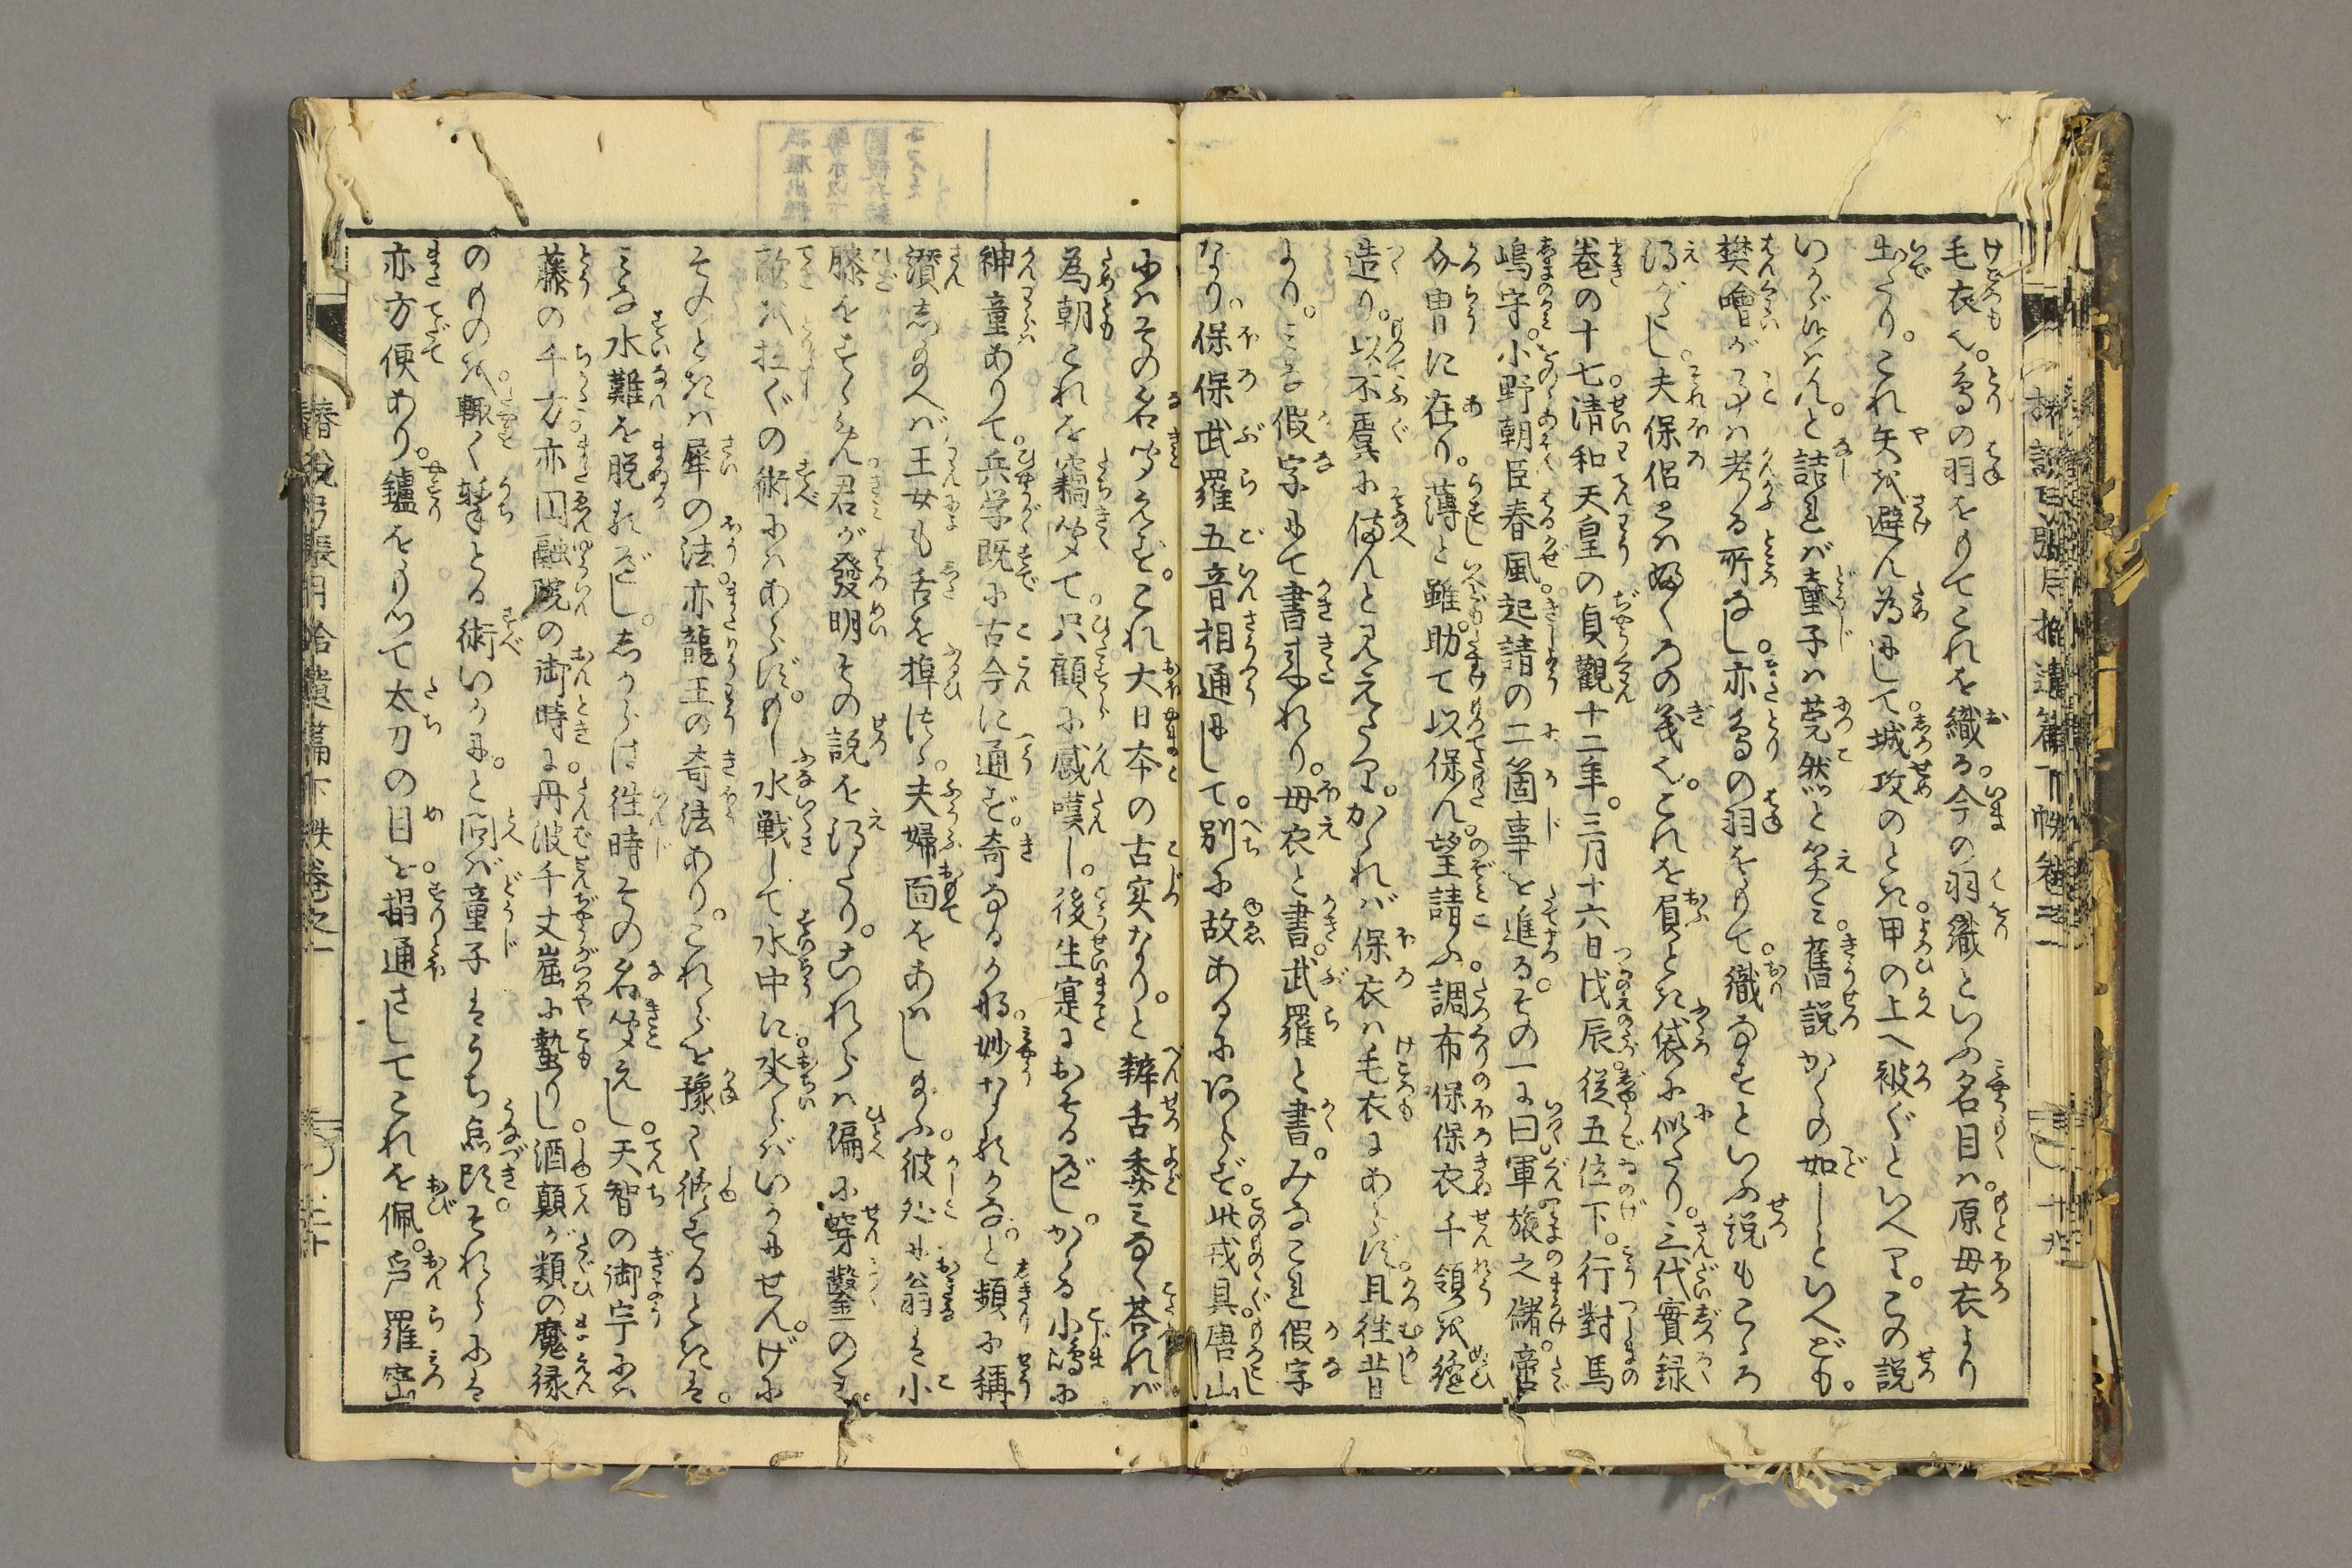 毛衣也。鳥の羽をもてこれを織る。今の羽織といふ名目は。原母衣より
出たり。これ矢を避ん為にして。城攻のとき。甲の上へ被ぐといへり。この説
いかゞ候はん。と詰れば。童子は莞然と笑み。舊説かくの如しといへども。
樊噲が事は考る所なし。亦鳥の羽をもて。織なすといふ説もこゝろ
得がたし。夫保侶とはふくろの義也。これを負とき袋に似たり。三代實録
巻の十七。清和天皇の貞觀十二年。三月十六日戊辰。従五位下。行對馬
嶋守。小野朝臣春風。起請の二箇事を進る。その一に曰。軍旅之儲。啻
介冑に在り。薄と雖。助て以保ん。望請ふ。調布保保衣千領を。縫
造り。以不虞に備んと見えたり。かゝれば保衣は毛衣にあらず。且往昔
より。みな假字にて書来れり。母衣と書。武羅と書。みなこれ假字
なり。保保武羅五音相通にして。別に故あるにあらず。此戎具。唐山
にはその名聞えず。これ大日本の古実なり。と辨舌委みなく答れば。
為朝これを竊聞て。只顧に感嘆し。後生寔におそるべし。かゝる小鴻に
神童ありて。兵学既に古今に通ず。奇なるかな。妙なるかな。と頻に稱
讃し給へば。王女も舌を掉つゝ。夫婦面をあはし給ふ。彼処に翁は小
膝をすゝめ。君が發明その説を得たり。これらは偏に穿鑿のみ。
敵を拉ぐの術にはあらず。もし水戦して水中に没らばいかにせん。げに
そのときは犀の法。亦龍王の奇法あり。これらを豫て修するときは。
みな水難を脱るべし。しからば往時その名聞えし。天智の御宇には
藤の千方。亦円融院の御時に。丹波千丈嵓に蟄りし。酒顛が類の魔縁
のものを。輙く撃とる術いかに。と問ば童子はうち点頭。それらには
亦方便あり。鑪をもつて太刀の目を。摺通さしてこれを佩。唵羅密
椿説弓張月拾遺篇下帙巻之一